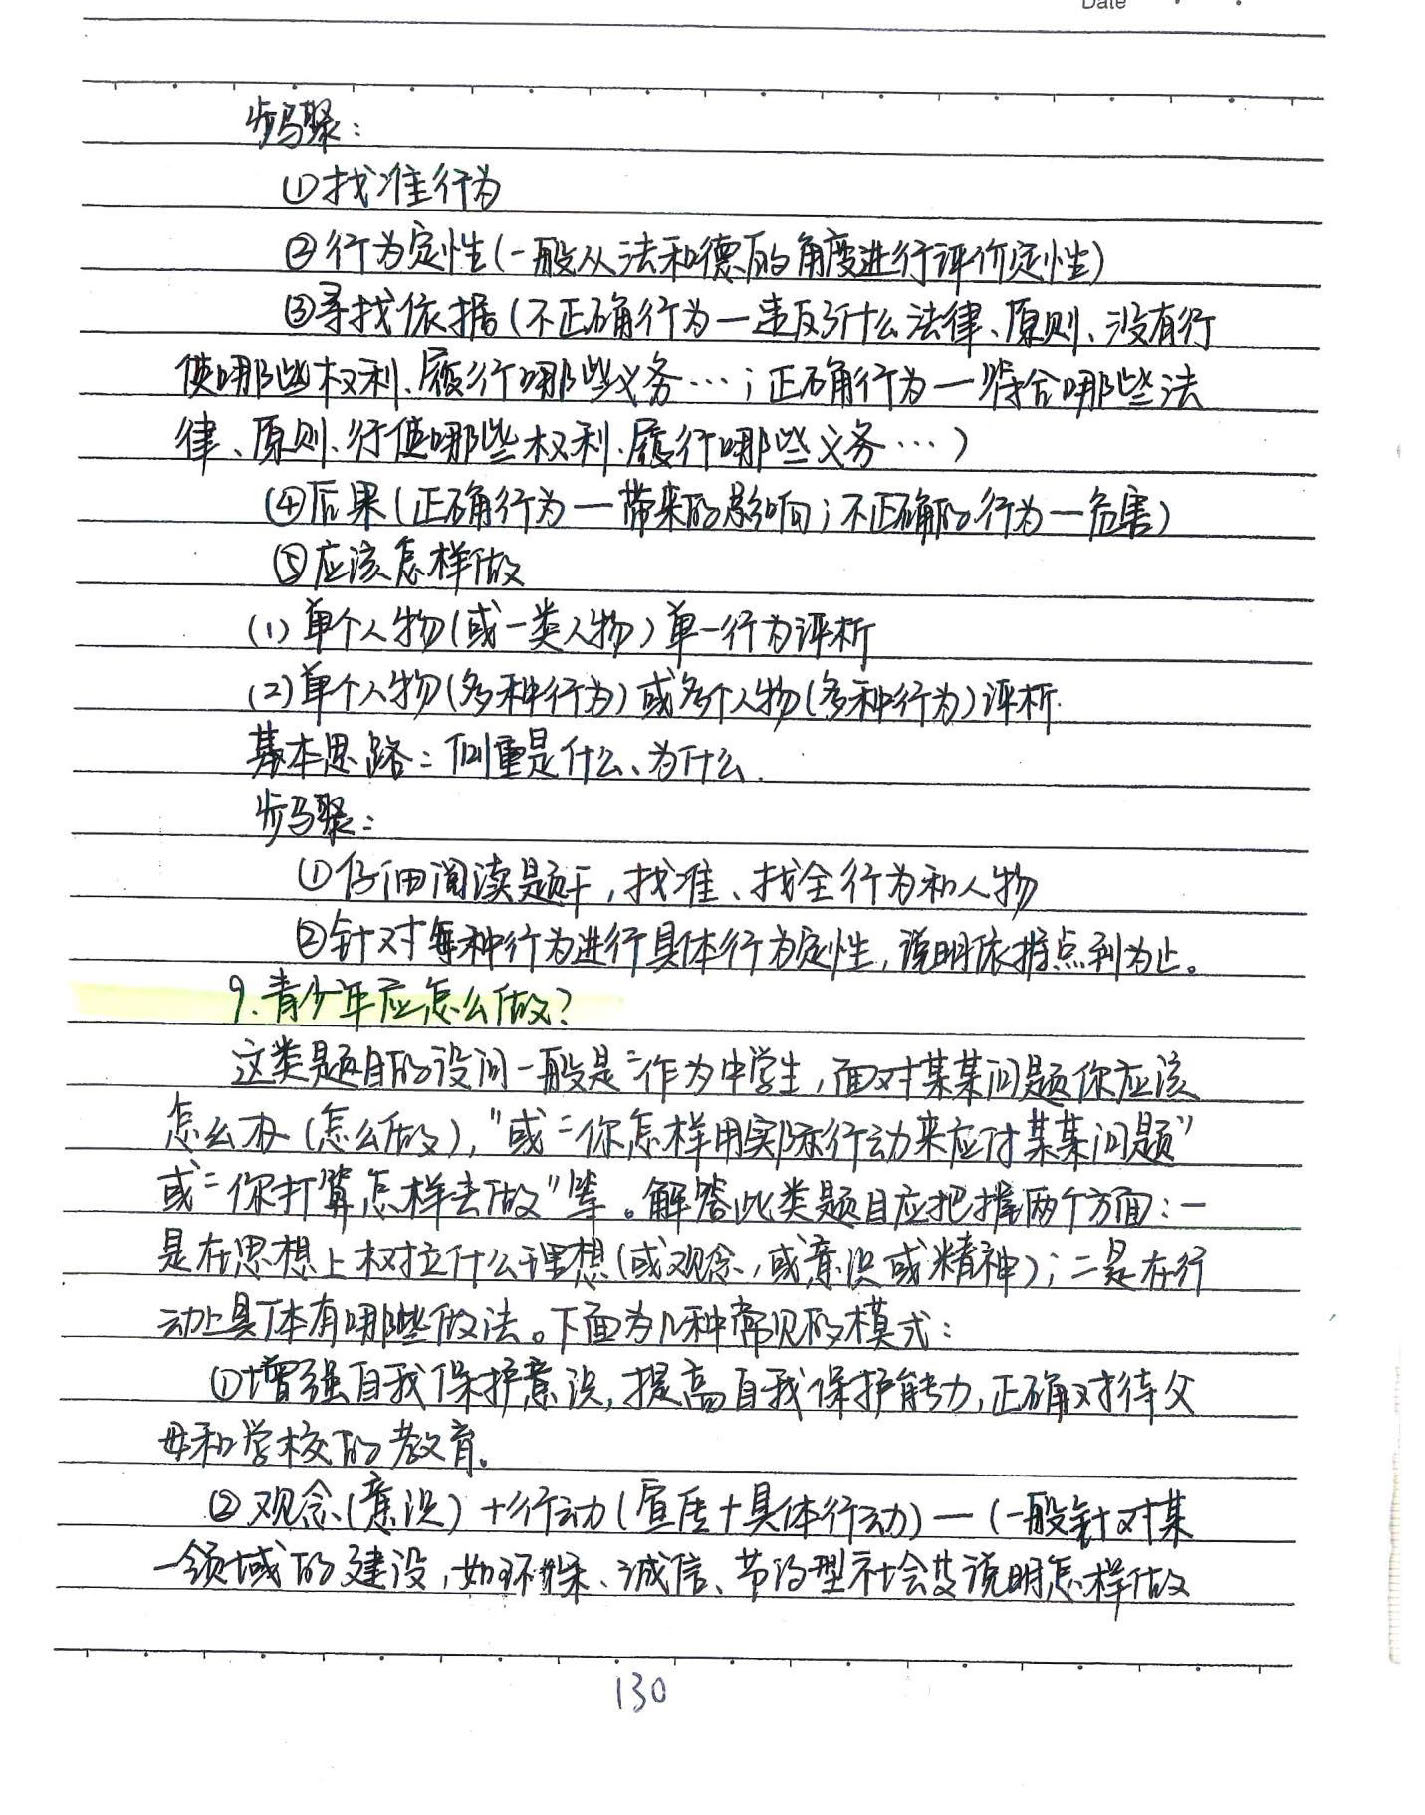 Date
步骤：
①找准行为
②行为定性(一般从法和德的角度进行评价定性)
③寻找依据(不正确行为—违反了什么法律、原则、没有行
使哪些权利、履行哪些义务…；正确行为—符合哪些法
律、原则、行使哪些权利、履行哪些义务…)
④后果(正确行为—带来的影响；不正确的行为—危害)
⑤应该怎样做
(1)单个人物(或一类人物)单一行为评析
(2)单个人物(多种行为)或多个人物(多种行为)评析.
基本思路：侧重是什么、为什么.
步骤：
①仔细阅读题干,找准、找全行为和人物
②针对每种行为进行具体行为定性,说明依据点到为止。
9.青少年应怎么做?
这类题目的设问一般是“作为中学生,面对某某问题你应该
怎么办(怎么做),”或“你怎样用实际行动来应付某某问题”
或“你打算怎样去做”等。解答此类题目应把握两个方面：一
是在思想上树立什么理想(或观念,或意识或精神)；二是在行
动上具体有哪些做法。下面为几种常见的模式：
①增强自我保护意识,提高自我保护能力,正确对待父
母和学校的教育。
②观念(意识)+行动(宣传+具体行动)—(一般针对某
一领域的建设,如环保、诚信、节约型社会及说明怎样做
130